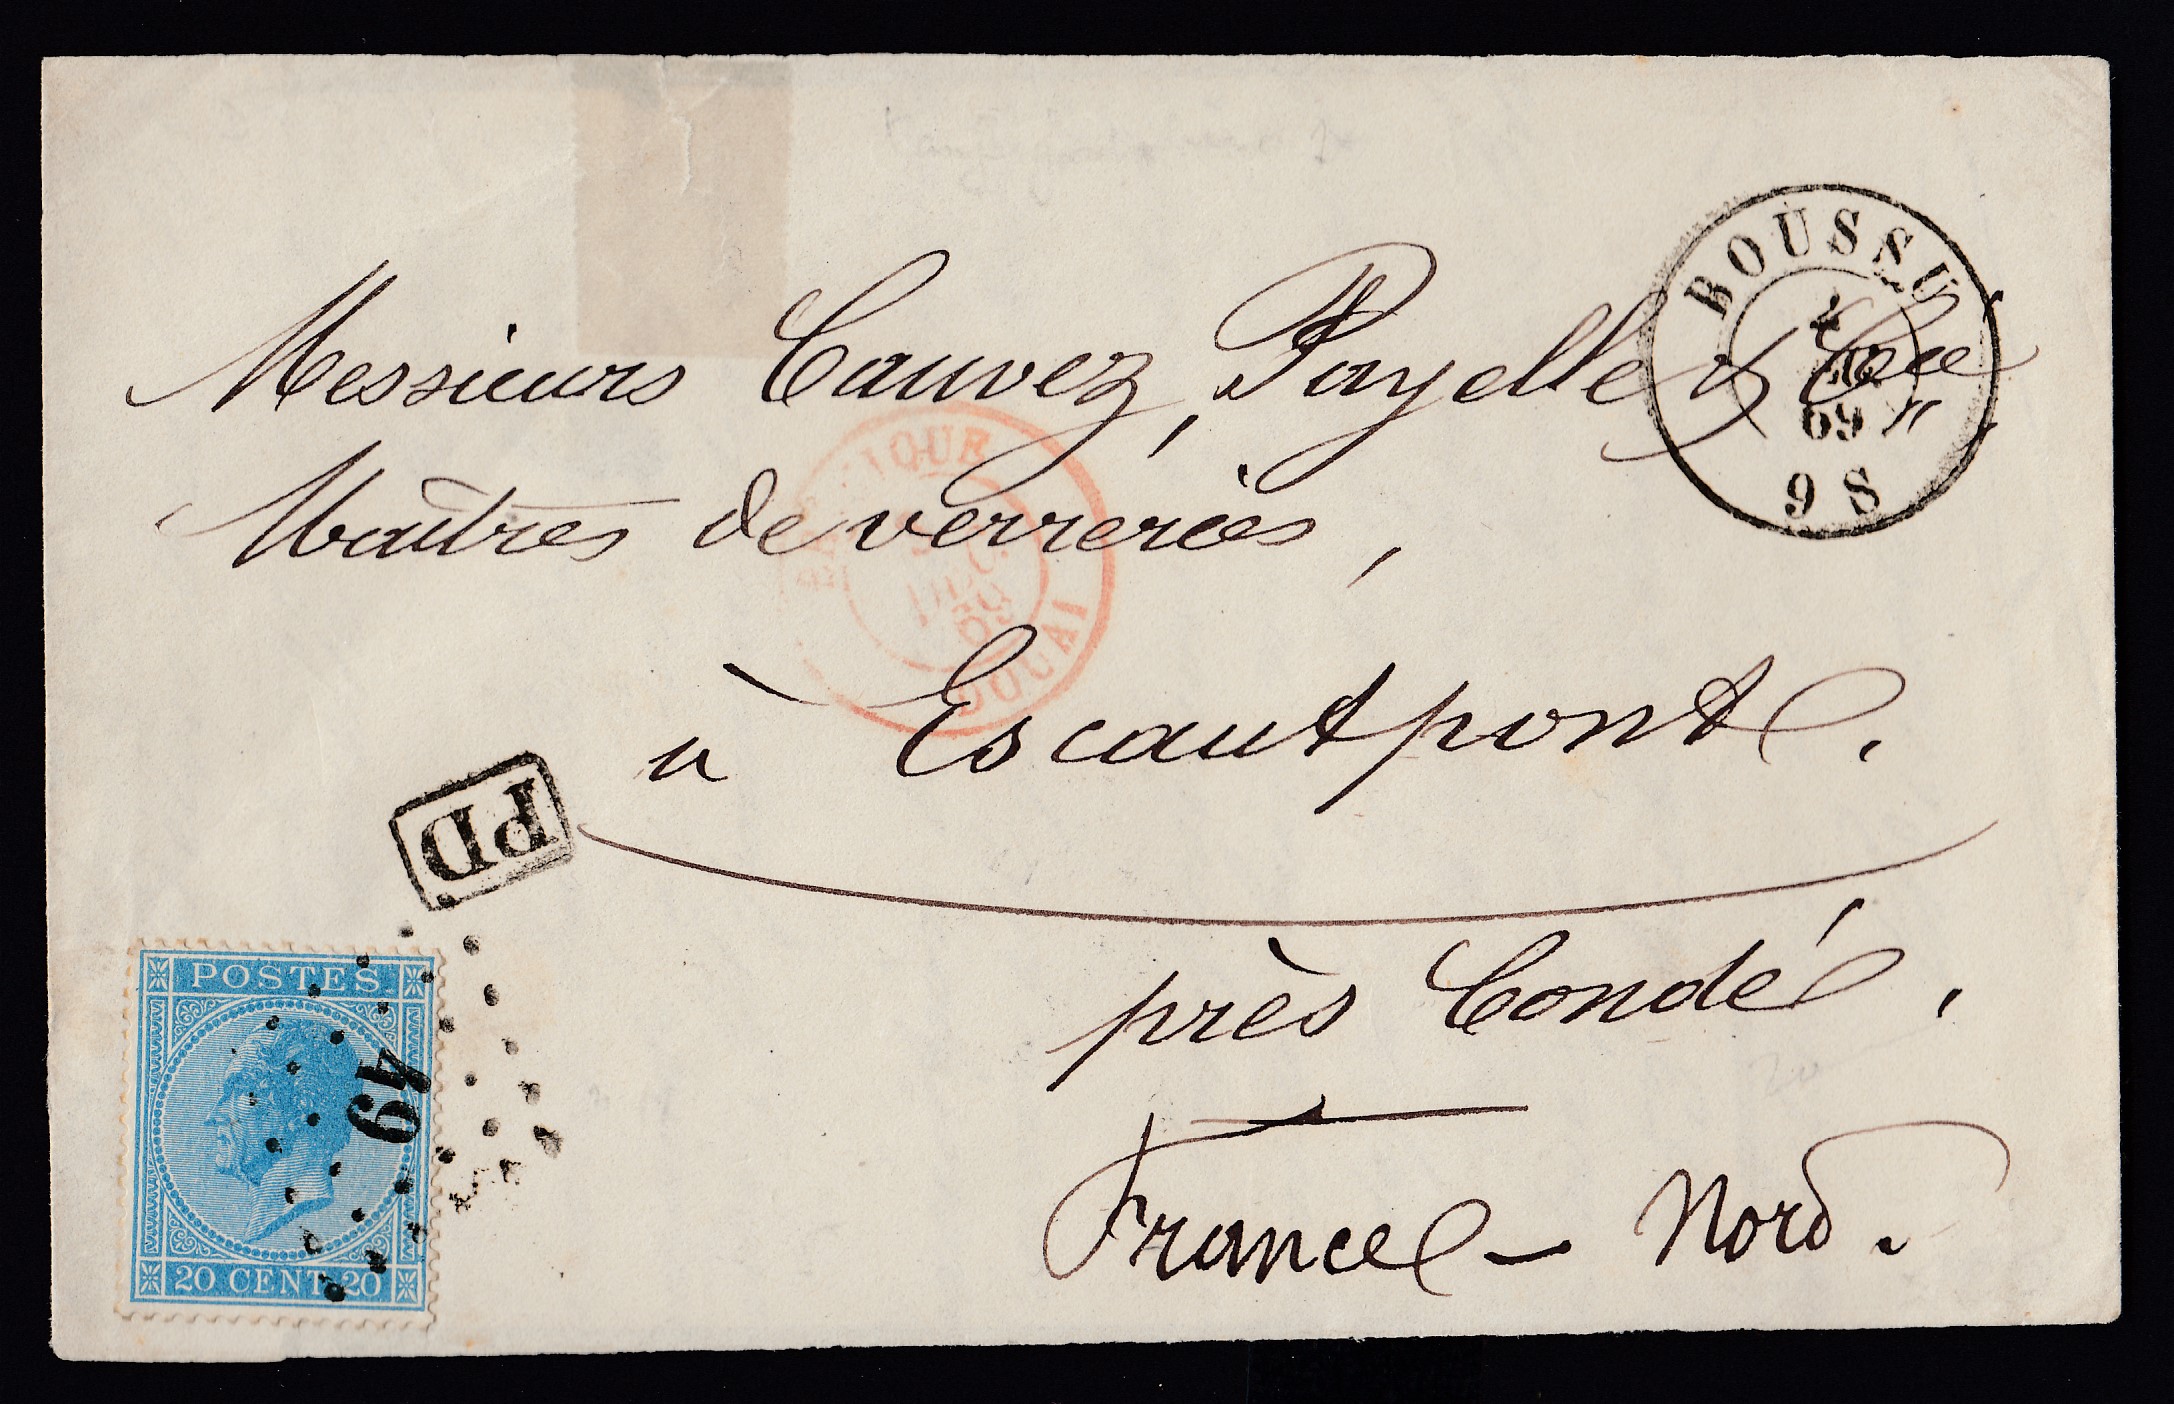 BOUSSU
69
9 S
Messieurs Cauvez, Payelle & Cie
Maîtres de verreries,
à Escautpont.
DOUAI
PD
près Condé,
France – Nord.
POSTES
49
20 CENT. 20